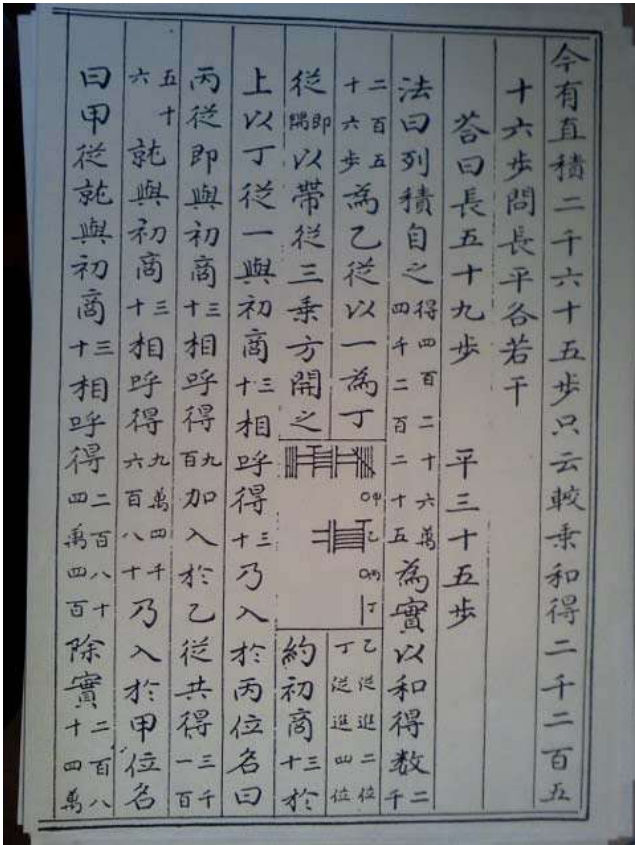 今有直積二千六十五步只云較乘和得二千二百五
十六步問長平各若干
荅曰長五十九步　平三十五步
法曰列積自之得四百二十六萬四千二百二十五為實以和得数二千
二百五十六步為乙從以一為丁
從即隅以帶從三乘方開之
甲
乙
丙
丁
乙從進二位丁從進四位
約初商三十於
上以丁從一與初商三十相呼得三十乃入於丙位名曰
丙從即與初商三十相呼得九百加入於乙從共得三千一百
五十六就與初商三十相呼得九萬四千六百八十乃入於甲位名
曰甲從就與初商三十相呼得二百八十四萬四百除實二百八十四萬